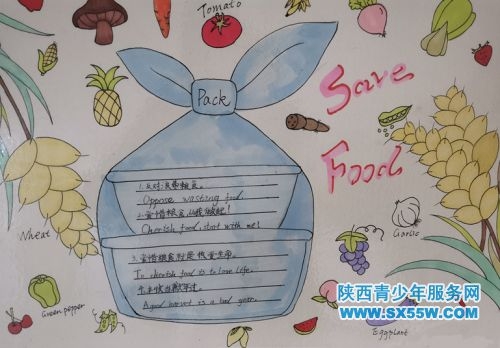 Tomato
Pack
Save
Food
1.反对浪费粮食。
Oppose wasting food.
2.爱惜粮食,从我做起!
Cherish food, start with me!
3.爱惜粮食就是热爱生命。
To cherish food is to love life.
A good harvest is a bad year.
Wheat
Garlic
Green pepper
Eggplant
陕西青少年服务网
www.sx55w.com